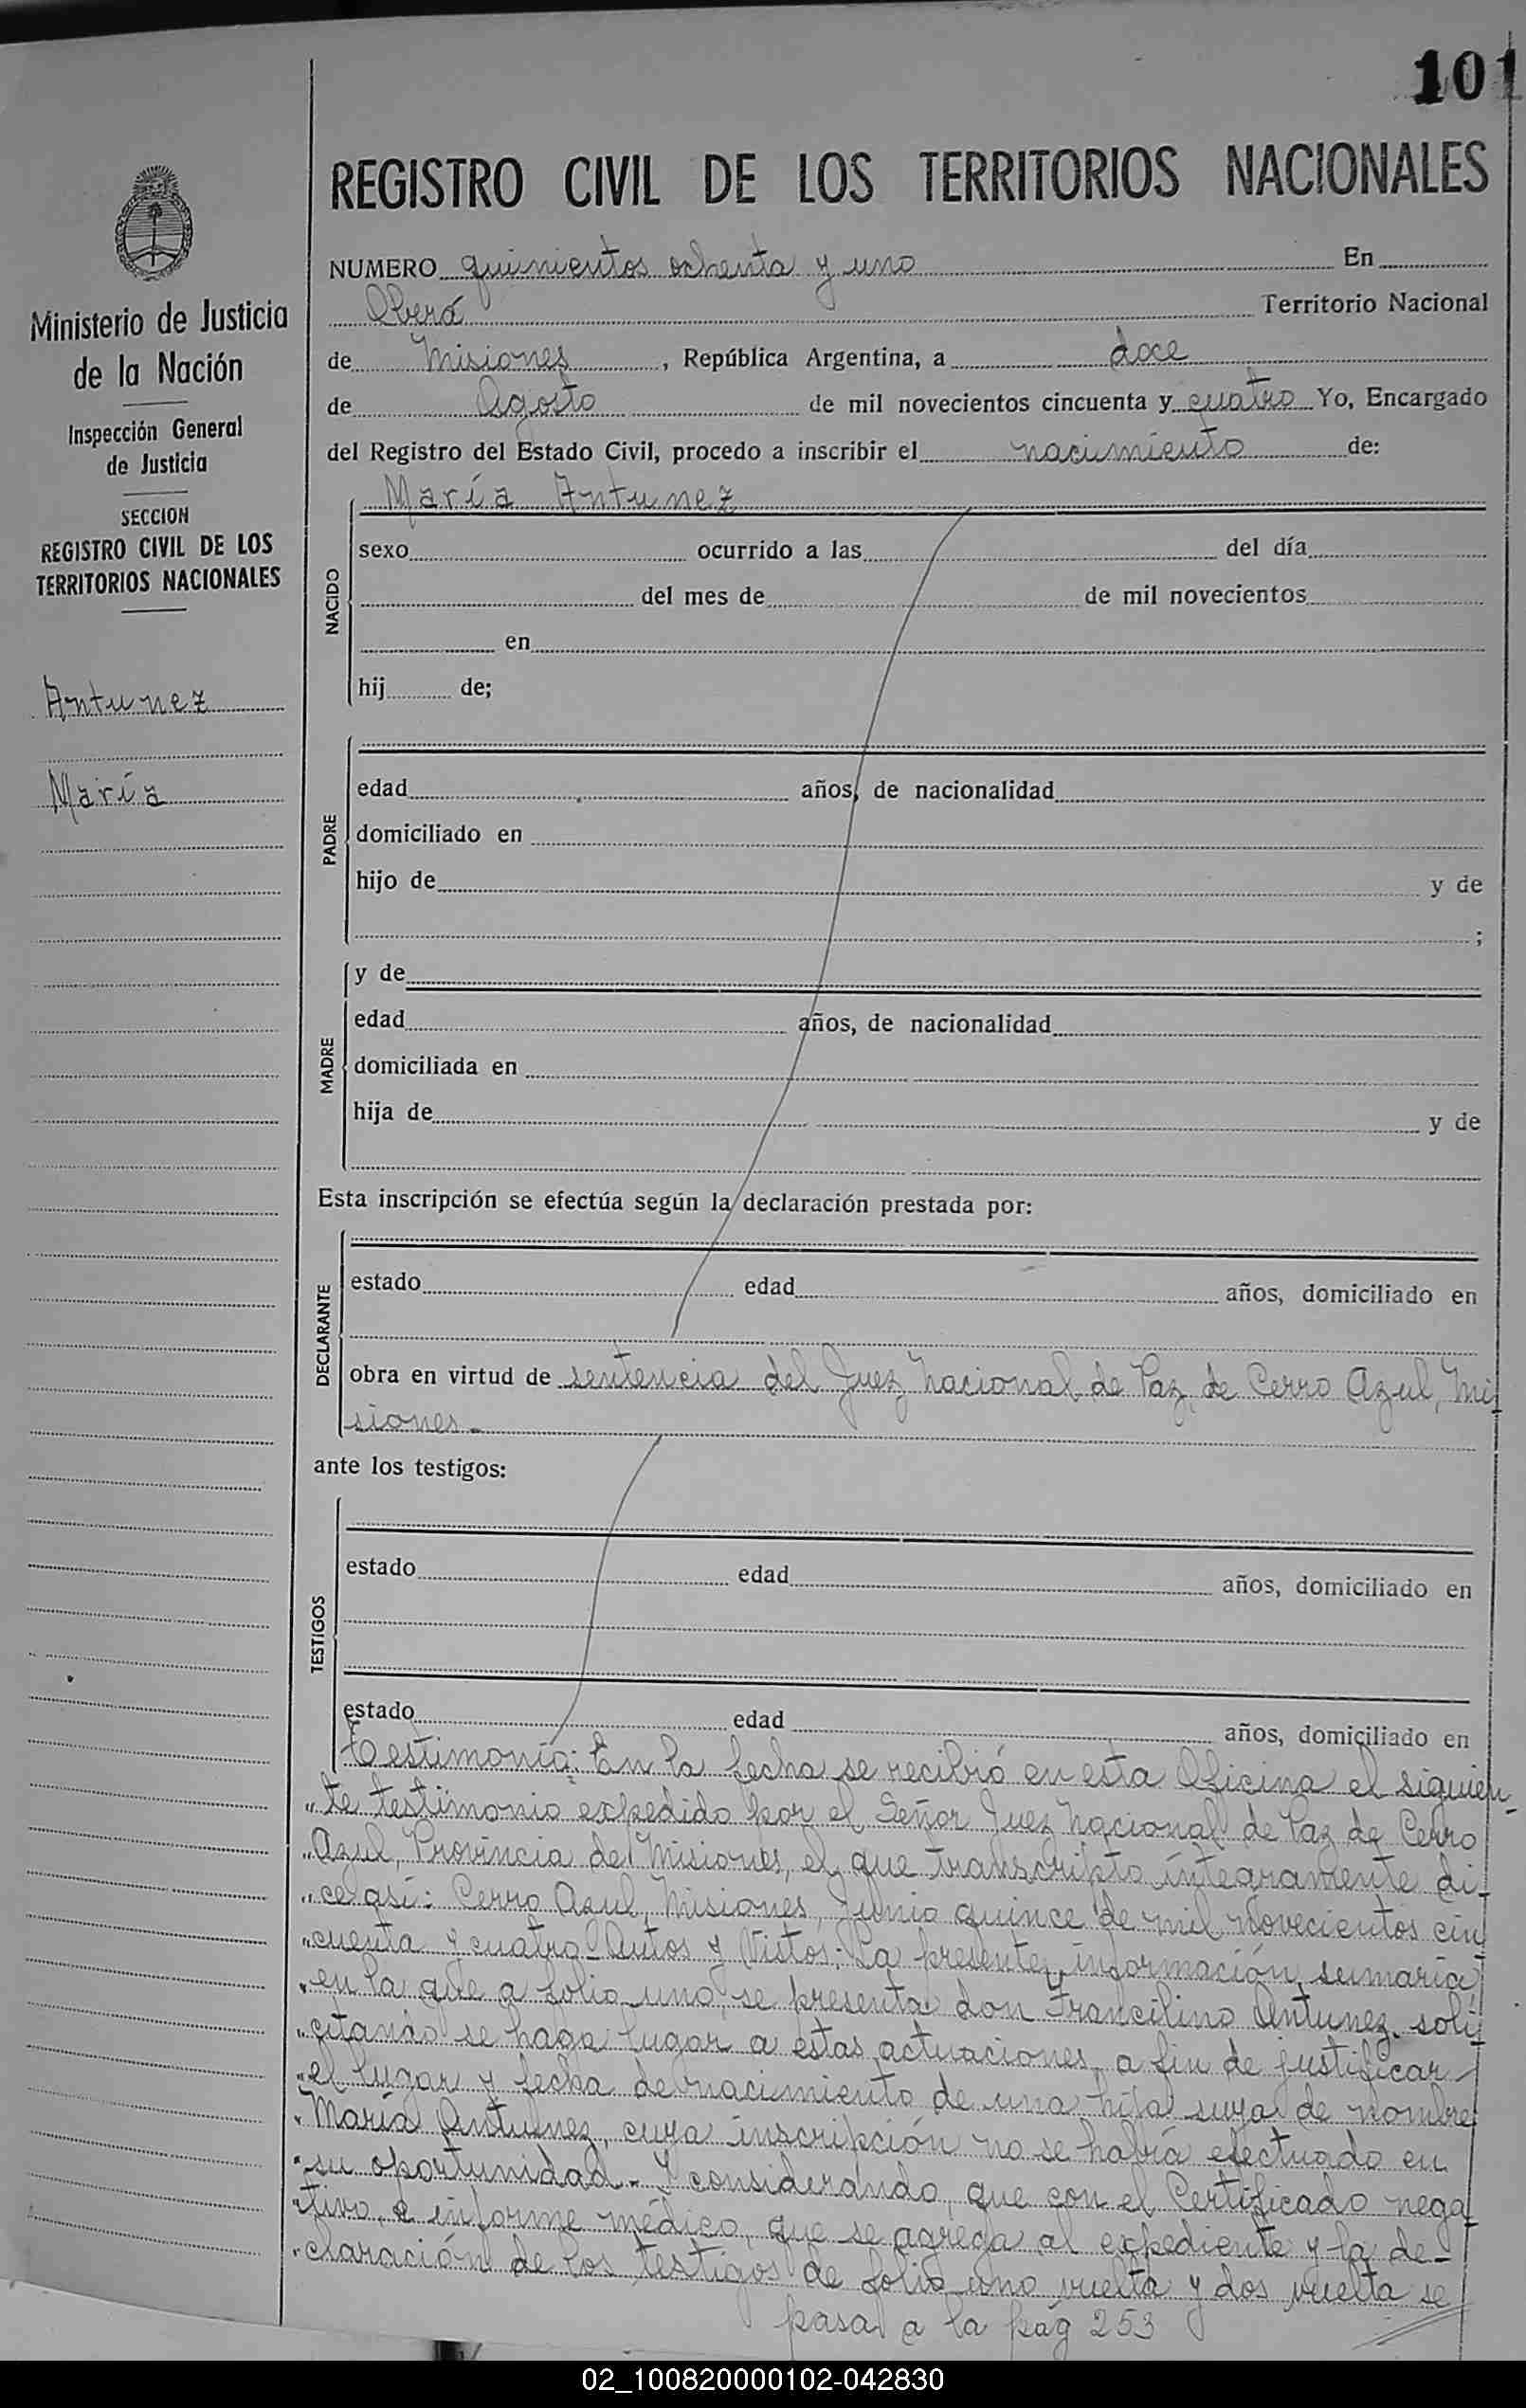 101
REGISTRO CIVIL DE LOS TERRITORIOS NACIONALES
NUMERO quinientos ochenta y uno En
Oberá Territorio Nacional
de Misiones, República Argentina, a doce
de Agosto de mil novecientos cincuenta y cuatro Yo, Encargado
del Registro del Estado Civil, procedo a inscribir el nacimiento de:
María Antunez
Ministerio de Justicia
de la Nación
Inspección General
de Justicia
SECCION
REGISTRO CIVIL DE LOS
TERRITORIOS NACIONALES
Antunez
María
NACIDO
sexo ocurrido a las del día
del mes de de mil novecientos
en
hij de;
PADRE
edad años, de nacionalidad
domiciliado en
hijo de y de
;
MADRE
y de
edad años, de nacionalidad
domiciliada en
hija de y de
Esta inscripción se efectúa según la declaración prestada por:
DECLARANTE
estado edad años, domiciliado en
obra en virtud de sentencia del Juez Nacional de Paz de Cerro Azul, Mi
siones.-
ante los testigos:
TESTIGOS
estado edad años, domiciliado en
estado edad años, domiciliado en
Testimonio: En la fecha se recibió en esta Oficina el siguien-
"te testimonio expedido por el Señor Juez Nacional de Paz de Cerro
"Azul, Provincia de Misiones, el que transcripto íntegramente di-
"ce así: Cerro Azul, Misiones, Junio quince de mil novecientos cin
"cuenta y cuatro.- Autos y Vistos: La presente información sumaria
"en la que a folio uno, se presenta don Francilino Antunez, soli
"citando se haga lugar a estas actuaciones a fin de justificar
"el lugar y fecha de nacimiento de una hija suya de nombre
"María Antunez, cuya inscripción no se habrá efectuado en
"su oportunidad.- Y considerando, que con el Certificado nega
"tivo, e informe médico, que se agrega al expediente y la de-
"claración de los testigos de folio uno vuelta y dos vuelta se
pasa a la pág 253
02_100820000102-042830